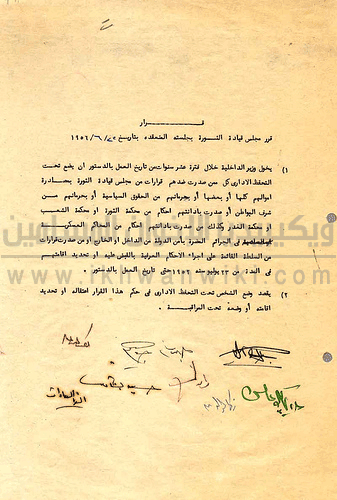 قـــرار
قرر مجلس قيادة الثورة بجلسته المنعقده بتاريخ ٢٢/٦/١٩٥٦
١) يخول وزير الداخلية خلال فترة عشر سنوات من تاريخ العمل بالدستور ان يضع تحت
التحفظ الادارى كل من صدرت ضدهم قرارات من مجلس قيادة الثورة بمصادرة
اموالهم كلها او بعضها أو بحرمانهم من الحقوق السياسية أو بحرمانهم من
شرف المواطن أو صدرت بادانتهم أحكام من محكمة الثورة او محكمة الشعب
او محكمة الغدر وكذلك من صدرت بادانتهم أحكام من المجالس العسكرية
فى الجرائم المضرة بأمن الدولة من الداخل أو الخارج او من صدرت قرارات
من السلطة القائمة على اجراء الاحكام العرفية بالقبض عليه او تحديد اقامتهم
فى المدة من ٢٣ يوليو سنه ١٩٥٢ حتى تاريخ العمل بالدستور .
٢) يقصد بوضع الشخص تحت التحفظ الادارى فى حكم هذا القرار اعتقاله او تحديد
اقامته أو وضعة تحت المراقبـة .
ويكيبيديا الإخوان المسلمين
www.ikhwanwiki.com